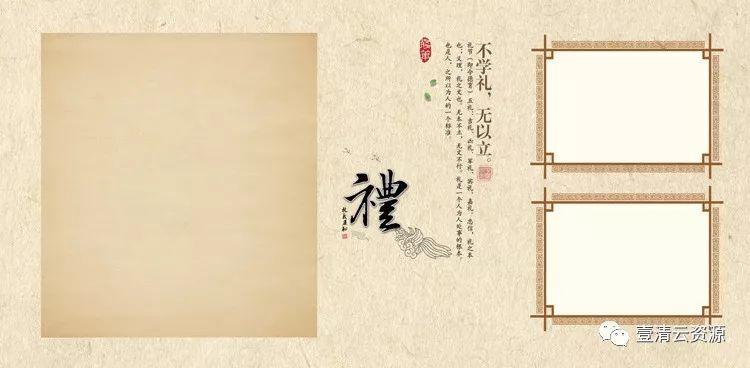 不学礼，无以立。
礼节（即今德育）五礼：吉礼、凶礼、军礼、宾礼、嘉礼。忠信，礼之本
也；义理，礼之文也。无本不立，无文不行。礼是一个人为人处事的根本。
也是人，之所以为人的一个标准。
禮
壹清云资源